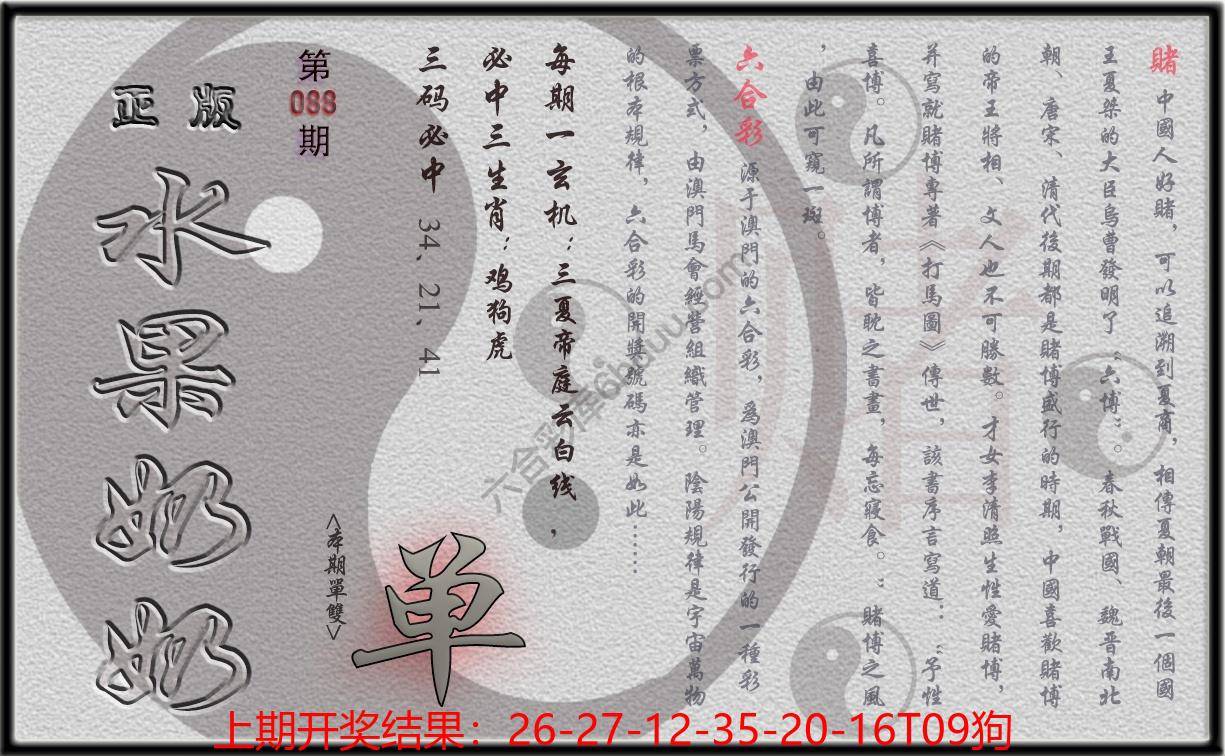 賭 中國人好賭，可以追溯到夏商，相傳夏朝最後一個國
王夏桀的大臣烏曹發明了“六博”。春秋戰國、魏晋南北
朝、唐宋、清代後期都是賭博盛行的時期，中國喜歡賭博
的帝王將相、文人也不可勝數。才女李清照生性愛賭博，
并寫就賭博專著《打馬圖》傳世，該書序言寫道：“予性
喜博。凡所謂博者，皆耽之書畫，每忘寢食。”賭博之風
，由此可窺一斑。
六合彩 源于澳門的六合彩，爲澳門公開發行的一種彩
票方式，由澳門馬會經營組織管理。陰陽規律是宇宙萬物
的根本規律，六合彩的開獎號碼亦是如此……
每期一玄机：三夏帝庭云白线，
必中三生肖：鸡狗虎
三码必中 34、21、41
第
088
期
正版
水果奶奶
<本期單雙>
单
赌
六合彩库6huuu.com
上期开奖结果：26-27-12-35-20-16T09狗